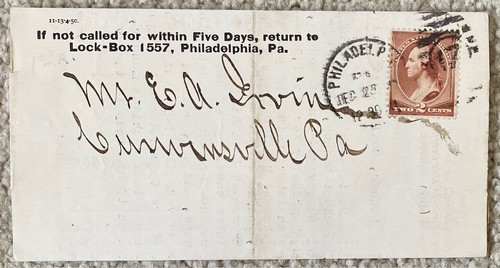 11-13-4-5c.
If not called for within Five Days, return to
Lock-Box 1557, Philadelphia, Pa.
PHILADELP
DEC 29
TWO 2 CENTS
Mr. E. A. Irvin
Curwensville Pa